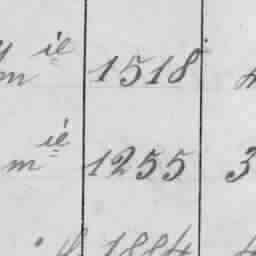 m ie 1518
m ié 1255 3
1884